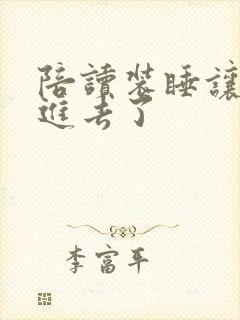 陪讀裝睡讓
進去了
李富平